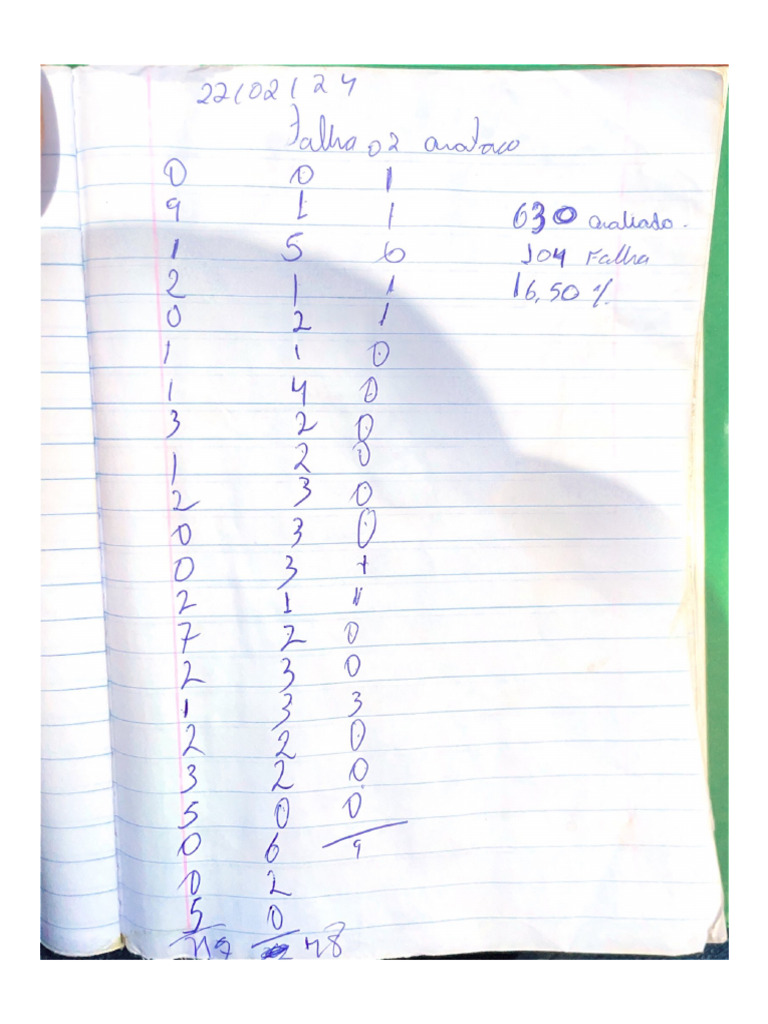 22/02/24
Falha 02 
0 0 1
9 1 1 630 avaliado.
1 5 6 104 Falha
2 1 1 16,50 %
0 2 1
1 1 0
1 4 0
3 2 0
1 2 0
2 3 0
0 3 0
0 3
2 1
7 2 0
2 3 0
1 3 3
2 2 0
3 2 0
5 0 0
0 6 9
0 2
5 0
48